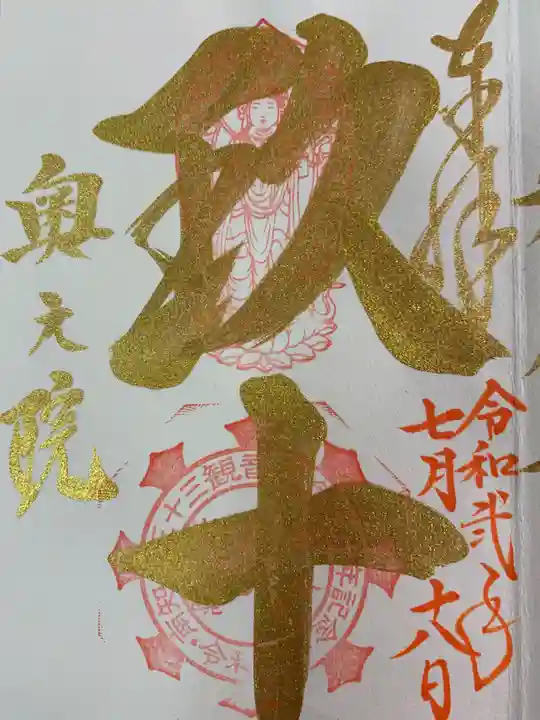 奉拝
令和弐年
七月十八日
玖十
奥之院
南知
十三観音
年記念